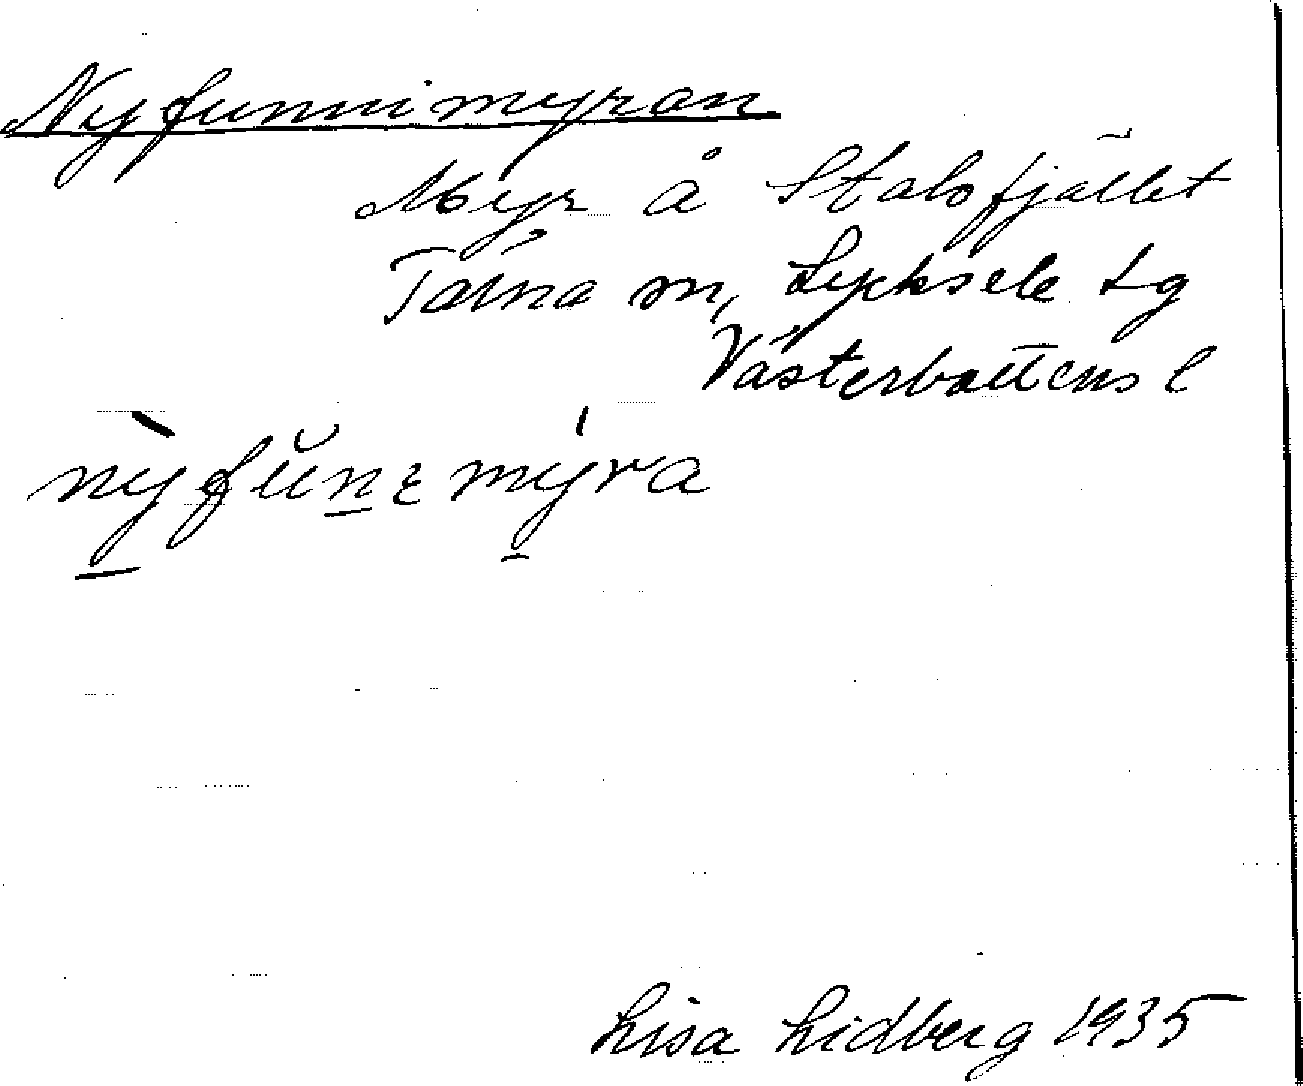 Nyfunnimyran
Myr å Stalofjället
Tärna sn, Lycksele Lg
Västerbottens l
nyfunɛmyra
Lisa Lidberg 1935